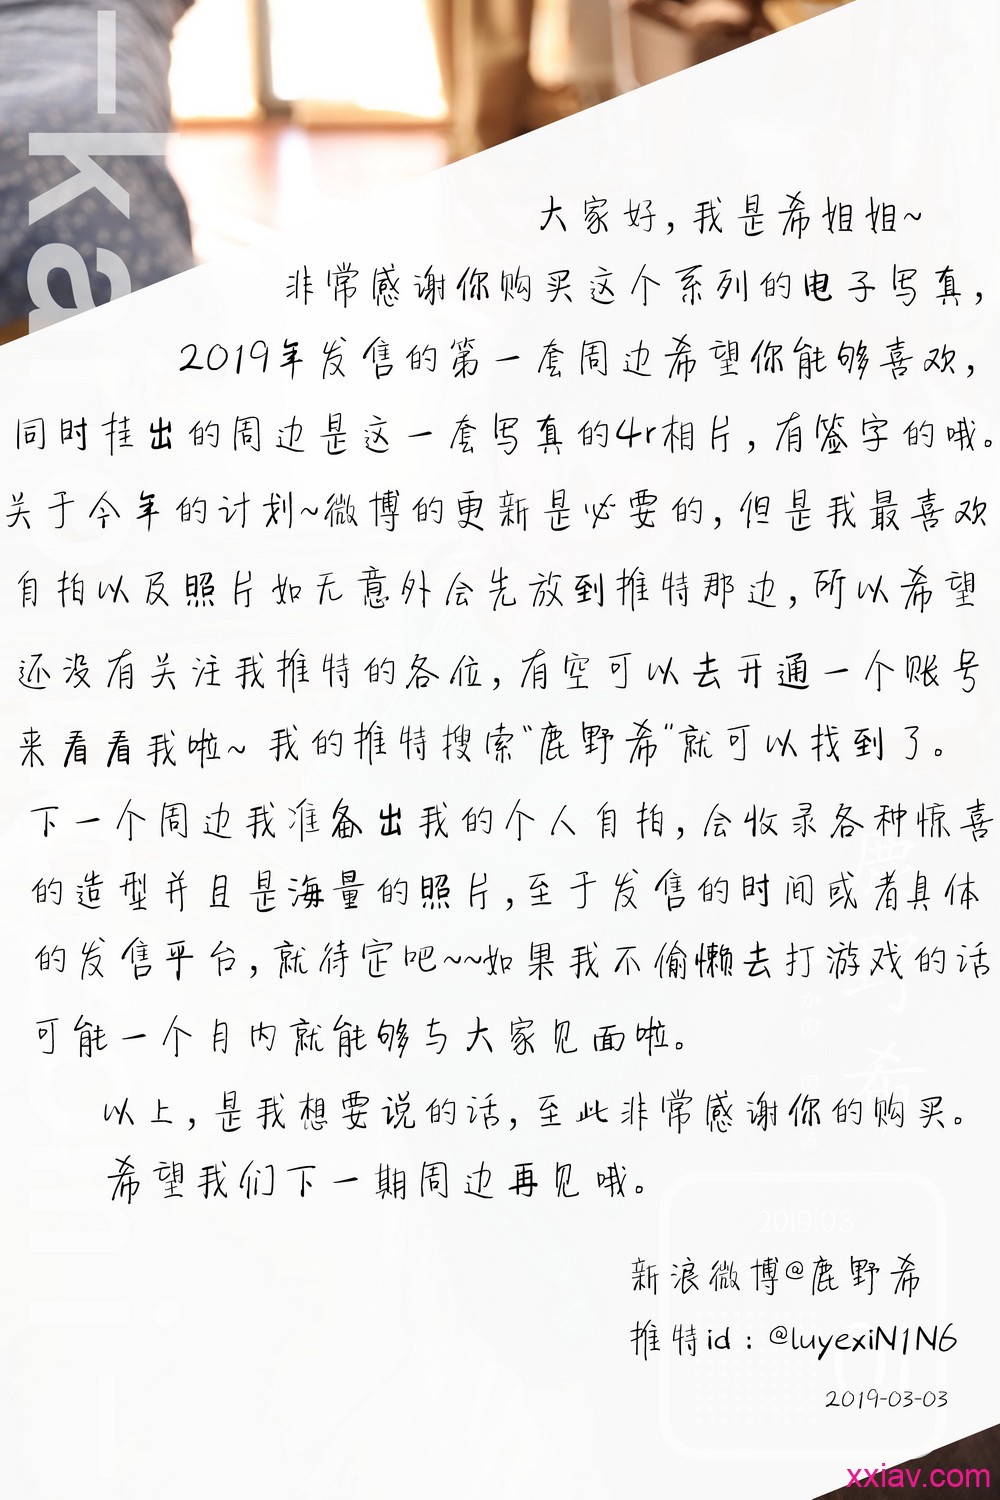 大家好,我是希姐姐~
非常感谢你购买这个系列的电子写真,
2019年发售的第一套周边希望你能够喜欢,
同时挂出的周边是这一套写真的4r相片,有签字的哦。
关于今年的计划~微博的更新是必要的,但是我最喜欢
自拍以及照片如无意外会先放到推特那边,所以希望
还没有关注我推特的各位,有空可以去开通一个账号
来看看我啦~ 我的推特搜索"鹿野希"就可以找到了。
下一个周边我准备出我的个人自拍,会收录各种惊喜
的造型并且是海量的照片,至于发售的时间或者具体
的发售平台,就待定吧~~如果我不偷懒去打游戏的话
可能一个月内就能够与大家见面啦。
以上,是我想要说的话,至此非常感谢你的购买。
希望我们下一期周边再见哦。
2019.03
新浪微博@鹿野希
推特id : @luyexiN1N6
01
2019-03-03
xxiav.com